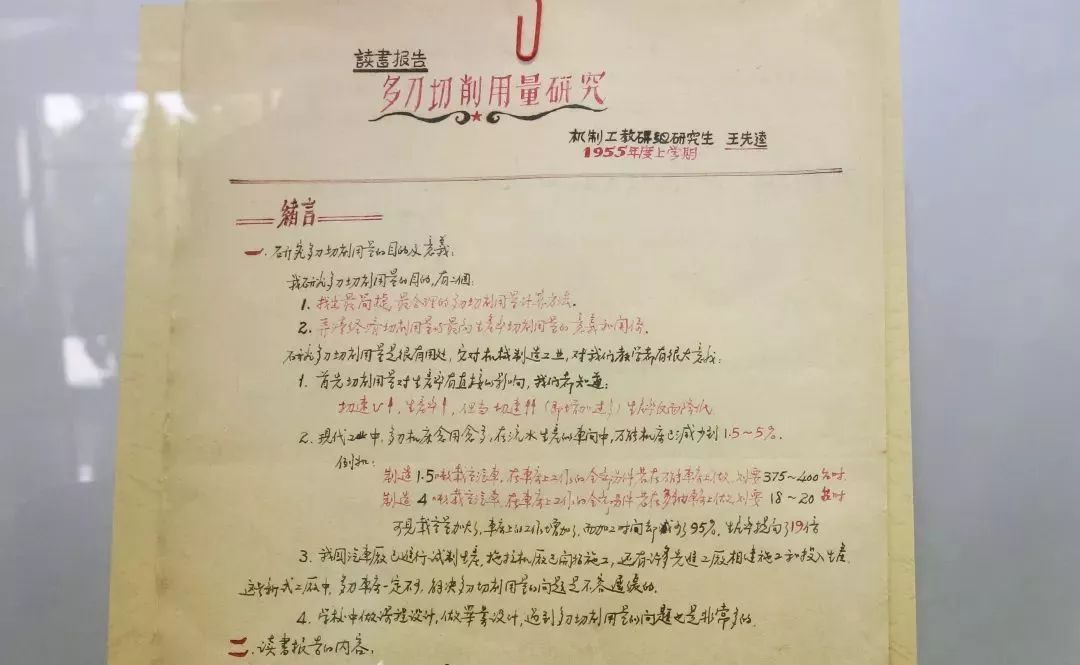 讀書报告
多刀切削用量研究
机制工教研組研究生 王先逵
1955年度上学期
緒言
一.研究多刀切削用量的目的及意義:
我研究多刀切削用量的目的,有二個:
1. 找出最簡捷,最合理的多刀切削用量计算方法.
2. 弄清经濟切削用量与最高生產率切削用量的意義和関係.
研究多刀切削用量是很有用处,它对机械制造工业,对我们教学都有很大意義:
1. 首先切削用量对生產率有直接的影响,我们都知道:
切速v↑,生產率↑,但当切速↑↑(即增加过多)生產率反而降低
2. 現代工业中,多刀机床会用会多,在流水生產的車间中,万能机床已减少到1.5~5%.
例如:
制造1.5吨载重汽車,在車床上工作的全部另件若在万能車床上做,则要375~400台时
制造4吨载重汽車,在車床上工作的全部另件若在多轴車床上做,则要18~20台时
可見载重量加大了,車床上的工作增加了,而加工时间却减少了95%,生產率提高了19倍
3. 我国汽車厰已進行試制生產,拖拉机厰已開始施工,还有许多先進工厰相继施工和投入生產.
这些新式工厰中,多刀車床一定不少,解决多刀切削用量的问题是不容遲緩的.
4. 学校中做课程设计,做畢業设计,遇到多刀切削用量的问题也是非常多的.
二.读書报告的内容: